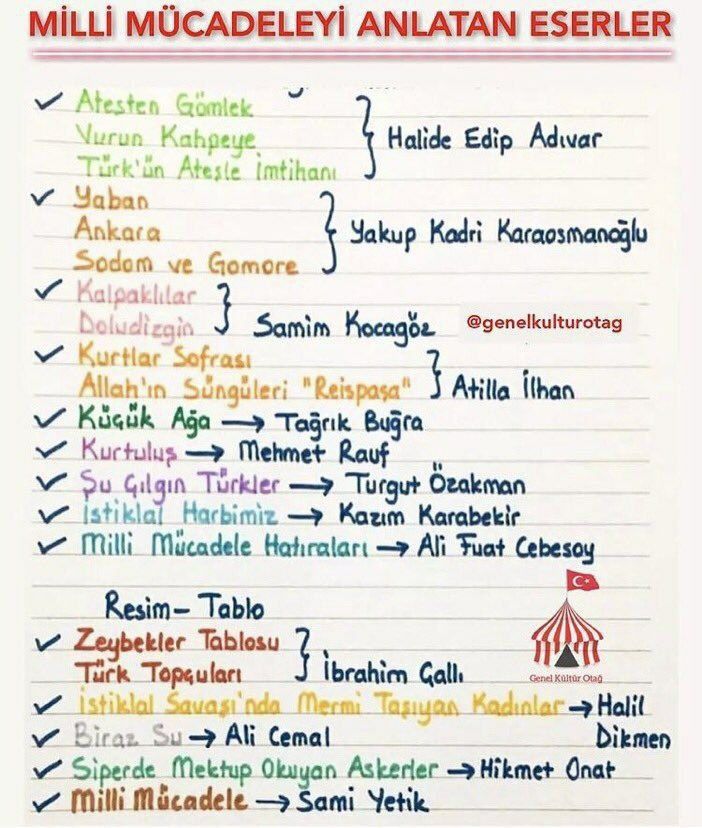 MİLLİ MÜCADELEYİ ANLATAN ESERLER
✓ Ateşten Gömlek
Vurun Kahpeye
Türk'ün Ateşle İmtihanı
} Halide Edip Adıvar
✓ Yaban
Ankara
Sodom ve Gomore
} Yakup Kadri Karaosmanoğlu
✓ Kalpaklılar
Doludizgin
} Samim Kocagöz
@genelkulturotag
✓ Kurtlar Sofrası
Allah'ın Süngüleri "Reispaşa"
} Atilla İlhan
✓ Küçük Ağa → Tağrık Buğra
✓ Kurtuluş → Mehmet Rauf
✓ Şu Çılgın Türkler → Turgut Özakman
✓ İstiklal Harbimiz → Kazım Karabekir
✓ Milli Mücadele Hatıraları → Ali Fuat Cebesoy
Resim - Tablo
✓ Zeybekler Tablosu
Türk Topçuları
} İbrahim Çallı
Genel Kültür Otağ
✓ İstiklal Savaşı'nda Mermi Taşıyan Kadınlar → Halil
Dikmen
✓ Biraz Su → Ali Cemal
✓ Siperde Mektup Okuyan Askerler → Hikmet Onat
✓ Milli Mücadele → Sami Yetik